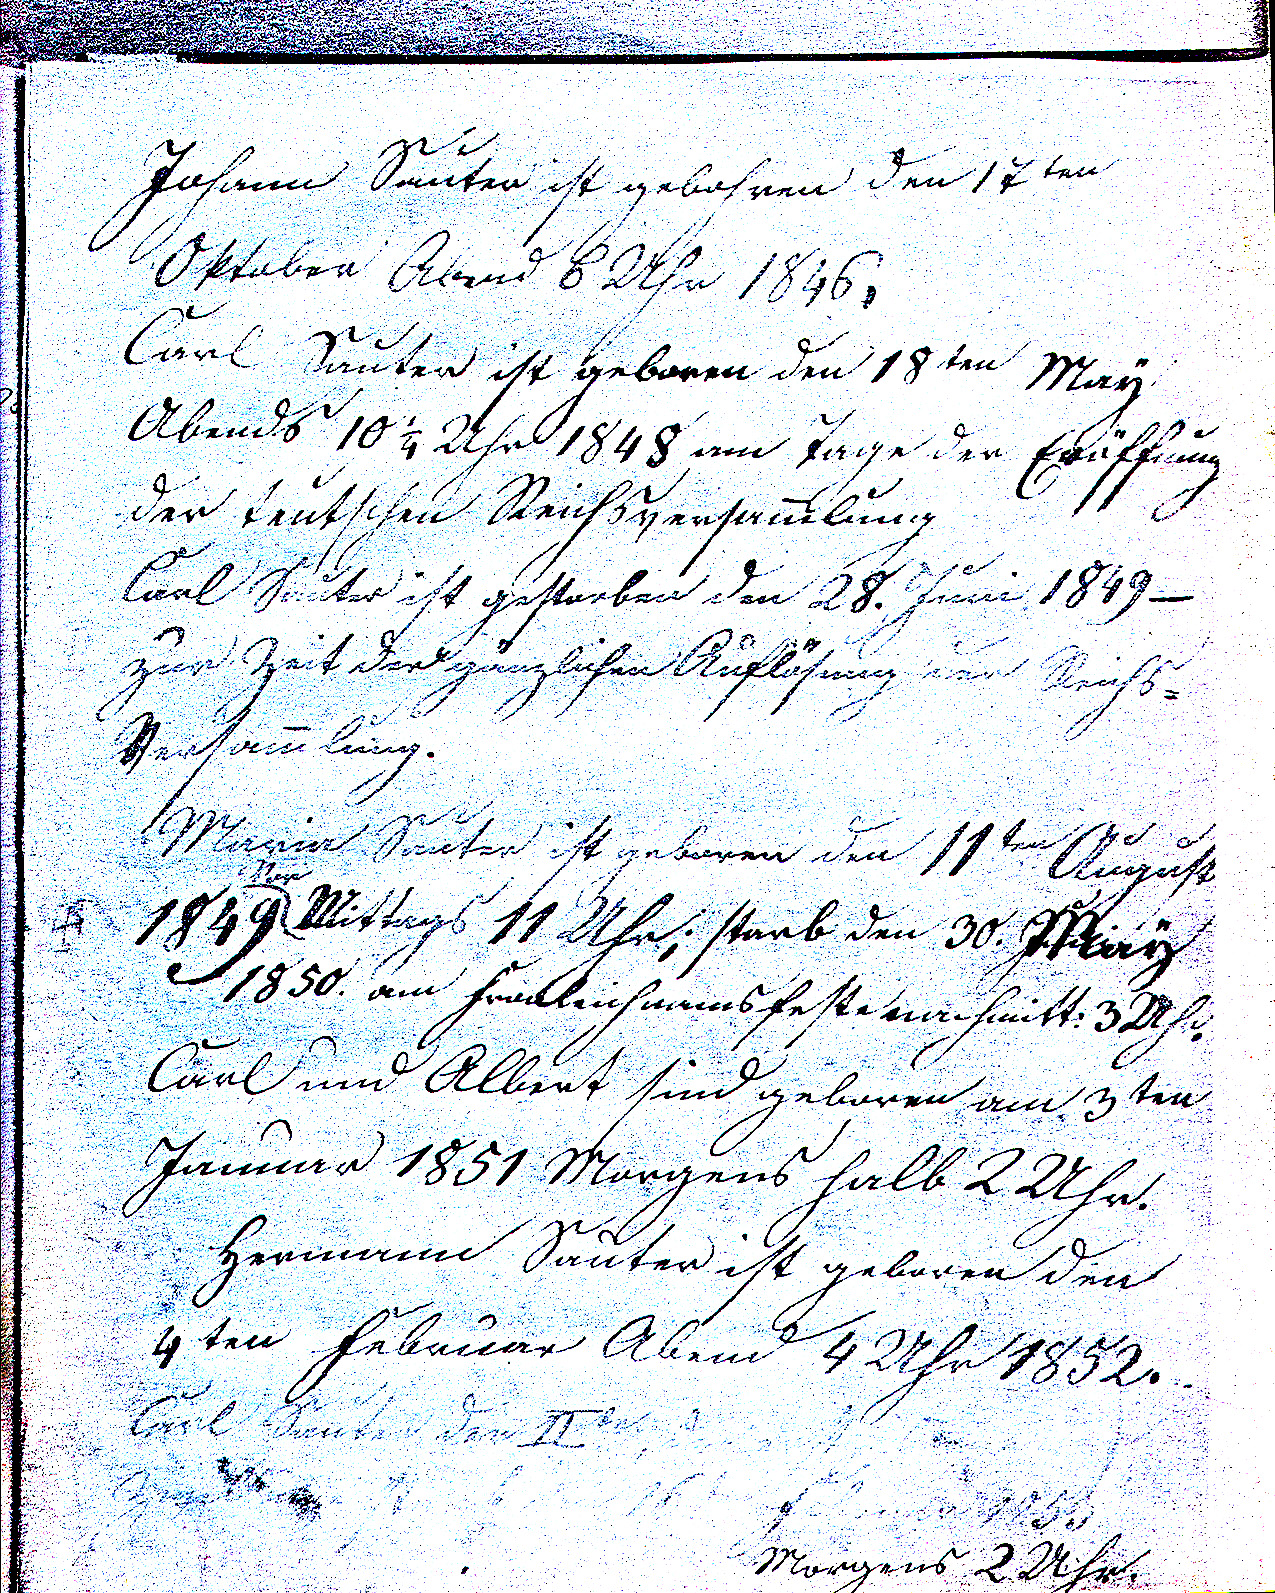 Johann Sauter ist gebohren den 17ten
Oktober Abend 8 Uhr 1846.
Carl Sauter ist geboren den 18ten May
Abends 10 1/4 Uhr 1848 am Tage der Eröffnung
der teutschen Reichsversam̅lung
Carl Sauter ist gestorben den 28. Juni 1849 –
zur Zeit der gänzlichen Auflösung der Reichs=
Versam̅lung.
Maria Sauter ist geboren den 11ten August
Vor
1849 Mittags 11 Uhr; starb den 30. May
1850. am Fronleichnamsfeste nachmitt: 3 Uhr.
Carl und Albert sind geboren am 3ten
Januar 1851 Morgens halb 2 Uhr.
Hermann Sauter ist geboren den
4ten Februar Abend 4 Uhr 1852.
Carl Sauter der II
Morgens 2 Uhr.